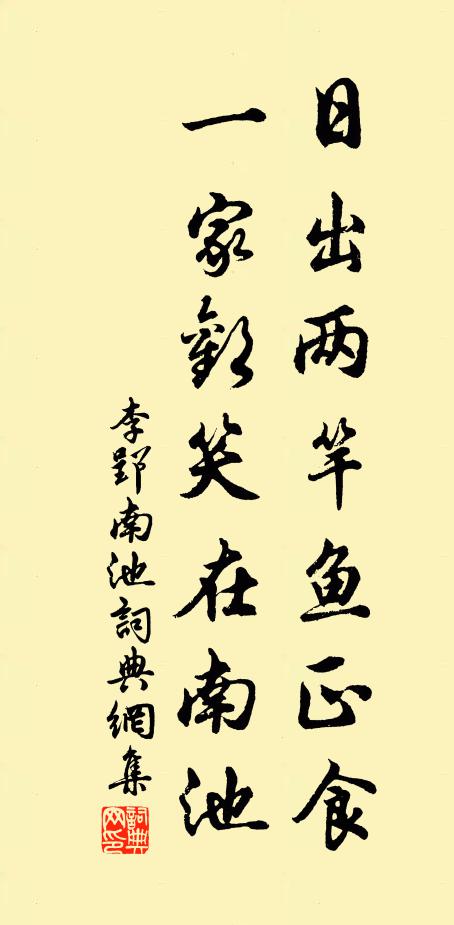 日出两竿鱼正食
一家歡笑在南池
李郢南池詞典網集
詞典网印